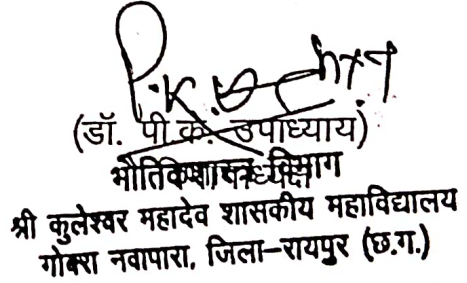 (डॉ. पी.के. उपाध्याय)
भौतिकशास्त्र विभाग
श्री कुलेश्वर महादेव शासकीय महाविद्यालय
गोबरा नवापारा, जिला-रायपुर (छ.ग.)